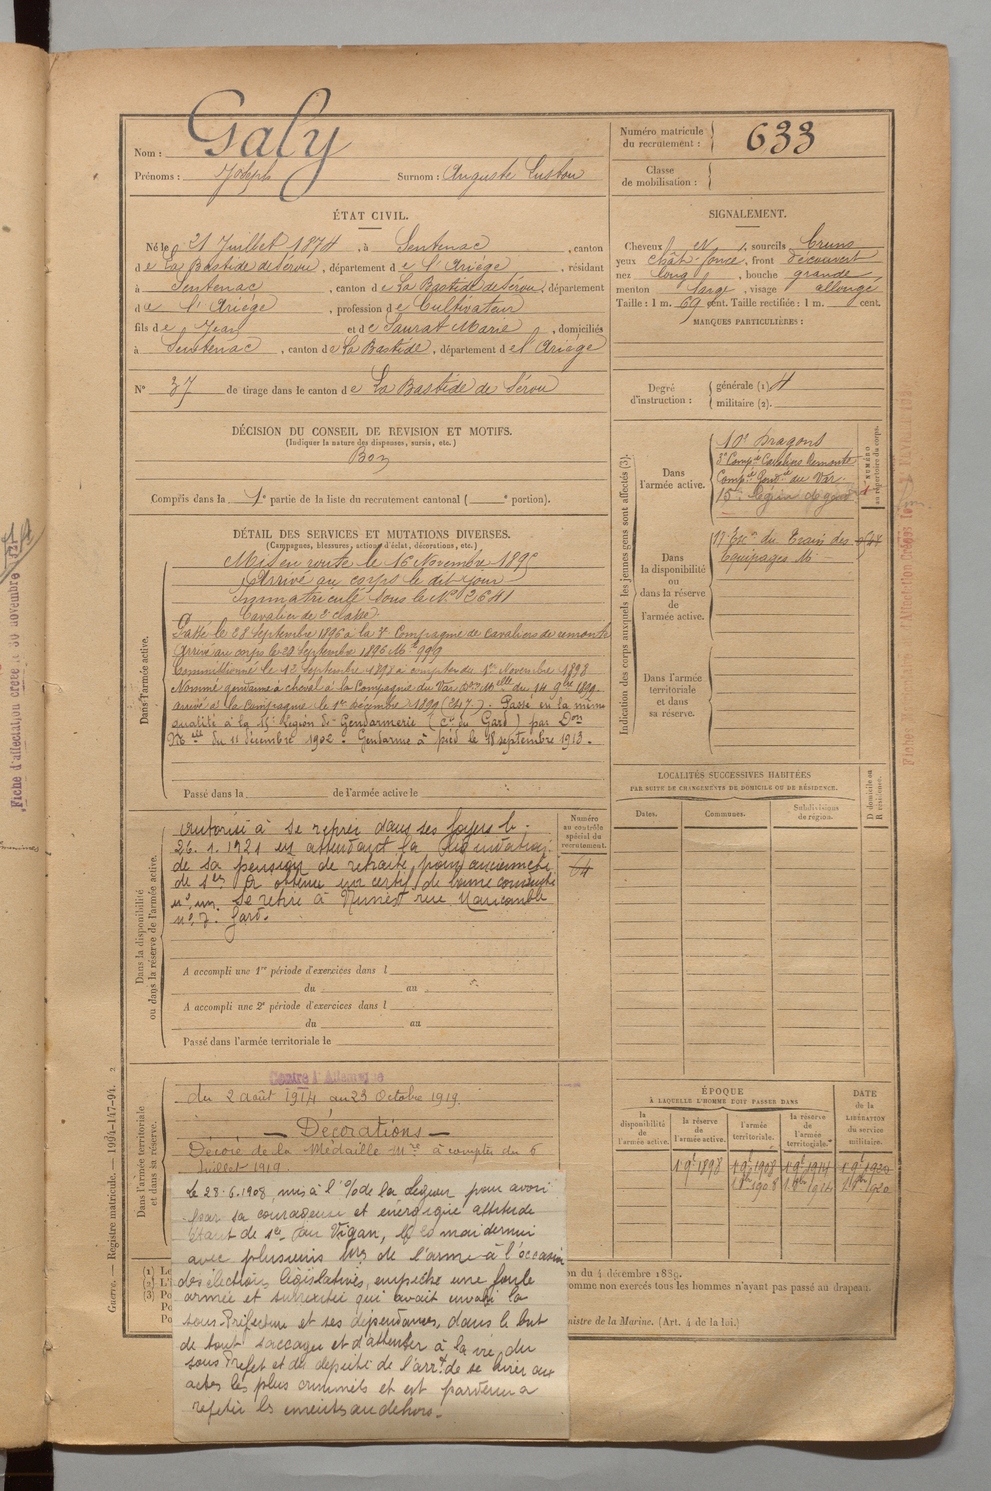 Nom : Galy
Prénoms : Joseph Surnom : Auguste
Numéro matricule du recrutement : 633
Classe de mobilisation :
ÉTAT CIVIL.
Né le 21 Juillet 1874, à Sentenac, canton
de La Bastide de Sérou, département de l'Ariège, résidant
à Sentenac, canton de La Bastide de Sérou, département
de l'Ariège, profession de Cultivateur
fils de Jean et de Saurat Marie, domiciliés
à Sentenac, canton de La Bastide, département de l'Ariège
N° 37 de tirage dans le canton de La Bastide de Sérou
SIGNALEMENT.
Cheveux et sourcils bruns
yeux chât. foncé, front découvert
nez long, bouche grande
menton large, visage allongé
Taille : 1 m. 69 cent. Taille rectifiée : 1 m. cent.
MARQUES PARTICULIÈRES :
Degré d'instruction : générale (1)
militaire (2).
DÉCISION DU CONSEIL DE RÉVISION ET MOTIFS.
(Indiquer la nature des dispenses, sursis, etc.)
Bon
Compris dans la 1e partie de la liste du recrutement cantonal ( portion).
DÉTAIL DES SERVICES ET MUTATIONS DIVERSES.
(Campagnes, blessures, actions d'éclat, décorations, etc.)
Dans l'armée active.
Mis en route le 16 Novembre 1895
Arrivé au corps le dit jour
Immatriculé sous le N° 2641
Cavalier de 2e classe
Passé le 28 Septembre 1896 à la 3e Compagnie de Cavaliers de remonte
Arrivé au corps le 29 Septembre 1896 Mle 999
Commissionné le 12 Septembre 1898 à compter du 1er Novembre 1898
Nommé gendarme à cheval à la Compagnie du Var Don Mlle du 14 9bre 1899.
Arrivé à la Compagnie le 1er décembre 1899 (247). Passé en la même
qualité à la 15e Légion de Gendarmerie (Cie du Gard) par Don
Mlle du 11 décembre 1902. Gendarme à pied le 18 septembre 1913.
Passé dans la de l'armée active le
Indication des corps auxquels les jeunes gens sont affectés (3).
NUMÉRO au répertoire du corps.
Dans l'armée active.
10e Dragons
3e Compie Cavaliers Remonte
Compie Gendie du Var
15e Légion de gend
Dans la disponibilité ou dans la réserve de l'armée active.
17 Esc. du Train des
Equipages Mres
Dans l'armée territoriale et dans sa réserve.
LOCALITÉS SUCCESSIVES HABITÉES
PAR SUITE DE CHANGEMENTS DE DOMICILE OU DE RÉSIDENCE.
Dates. Communes. Subdivisions de région. D domicile ou R résidence.
Dans la disponibilité ou dans la réserve de l'armée active.
Numéro au contrôle spécial du recrutement.
64
Autorisé à se retirer dans ses foyers le
26.1.1921 en attendant la liquidation
de sa pension de retraite pour ancienneté
de sces A obtenu un certif. de bonne conduite
Se retire à Nîmes rue
n° 7. Gard.
A accompli une 1re période d'exercices dans l
du au
A accompli une 2e période d'exercices dans l
du au
Passé dans l'armée territoriale le
Dans l'armée territoriale et dans sa réserve.
Contre l'Allemagne
du 2 août 1914 au 23 Octobre 1919.
— Décorations —
Décoré de la Médaille Mre à compter du 6
Juillet 1919.
Le 28.6.1908, mis à l'%de la Légion pour avoir
par sa courageuse et énergique attitude
étant de sce au Vigan, le 10 mai dernier
avec plusieurs de l'arme à l'occasion
des élections législatives, empêché une foule
armée et surexcitée qui avait envahi la
sous-Préfecture et ses dépendances, dans le but
de tout saccager et d'attenter à la vie du
sous Préfet et du député de l'arrt de se livrer aux
actes les plus criminels et est parvenu à
refouler les émeutiers au dehors.
ÉPOQUE
À LAQUELLE L'HOMME DOIT PASSER DANS
la disponibilité de l'armée active. la réserve de l'armée active. l'armée territoriale. la réserve de l'armée territoriale.
DATE de la LIBÉRATION du service militaire.
1 9bre 1898 1 9bre 1908 1 9bre 1914 1 9bre 1920
1 8bre 1908 1 8bre 1914 1 8bre 1920
on du 4 décembre 1889.
omme non exercés tous les hommes n'ayant pas passé au drapeau.
inistre de la Marine. (Art. 4 de la loi.)
Guerre. — Registre matricule. — 1094-147-94.
Fiche d'affectation créée le 30 novembre 1921